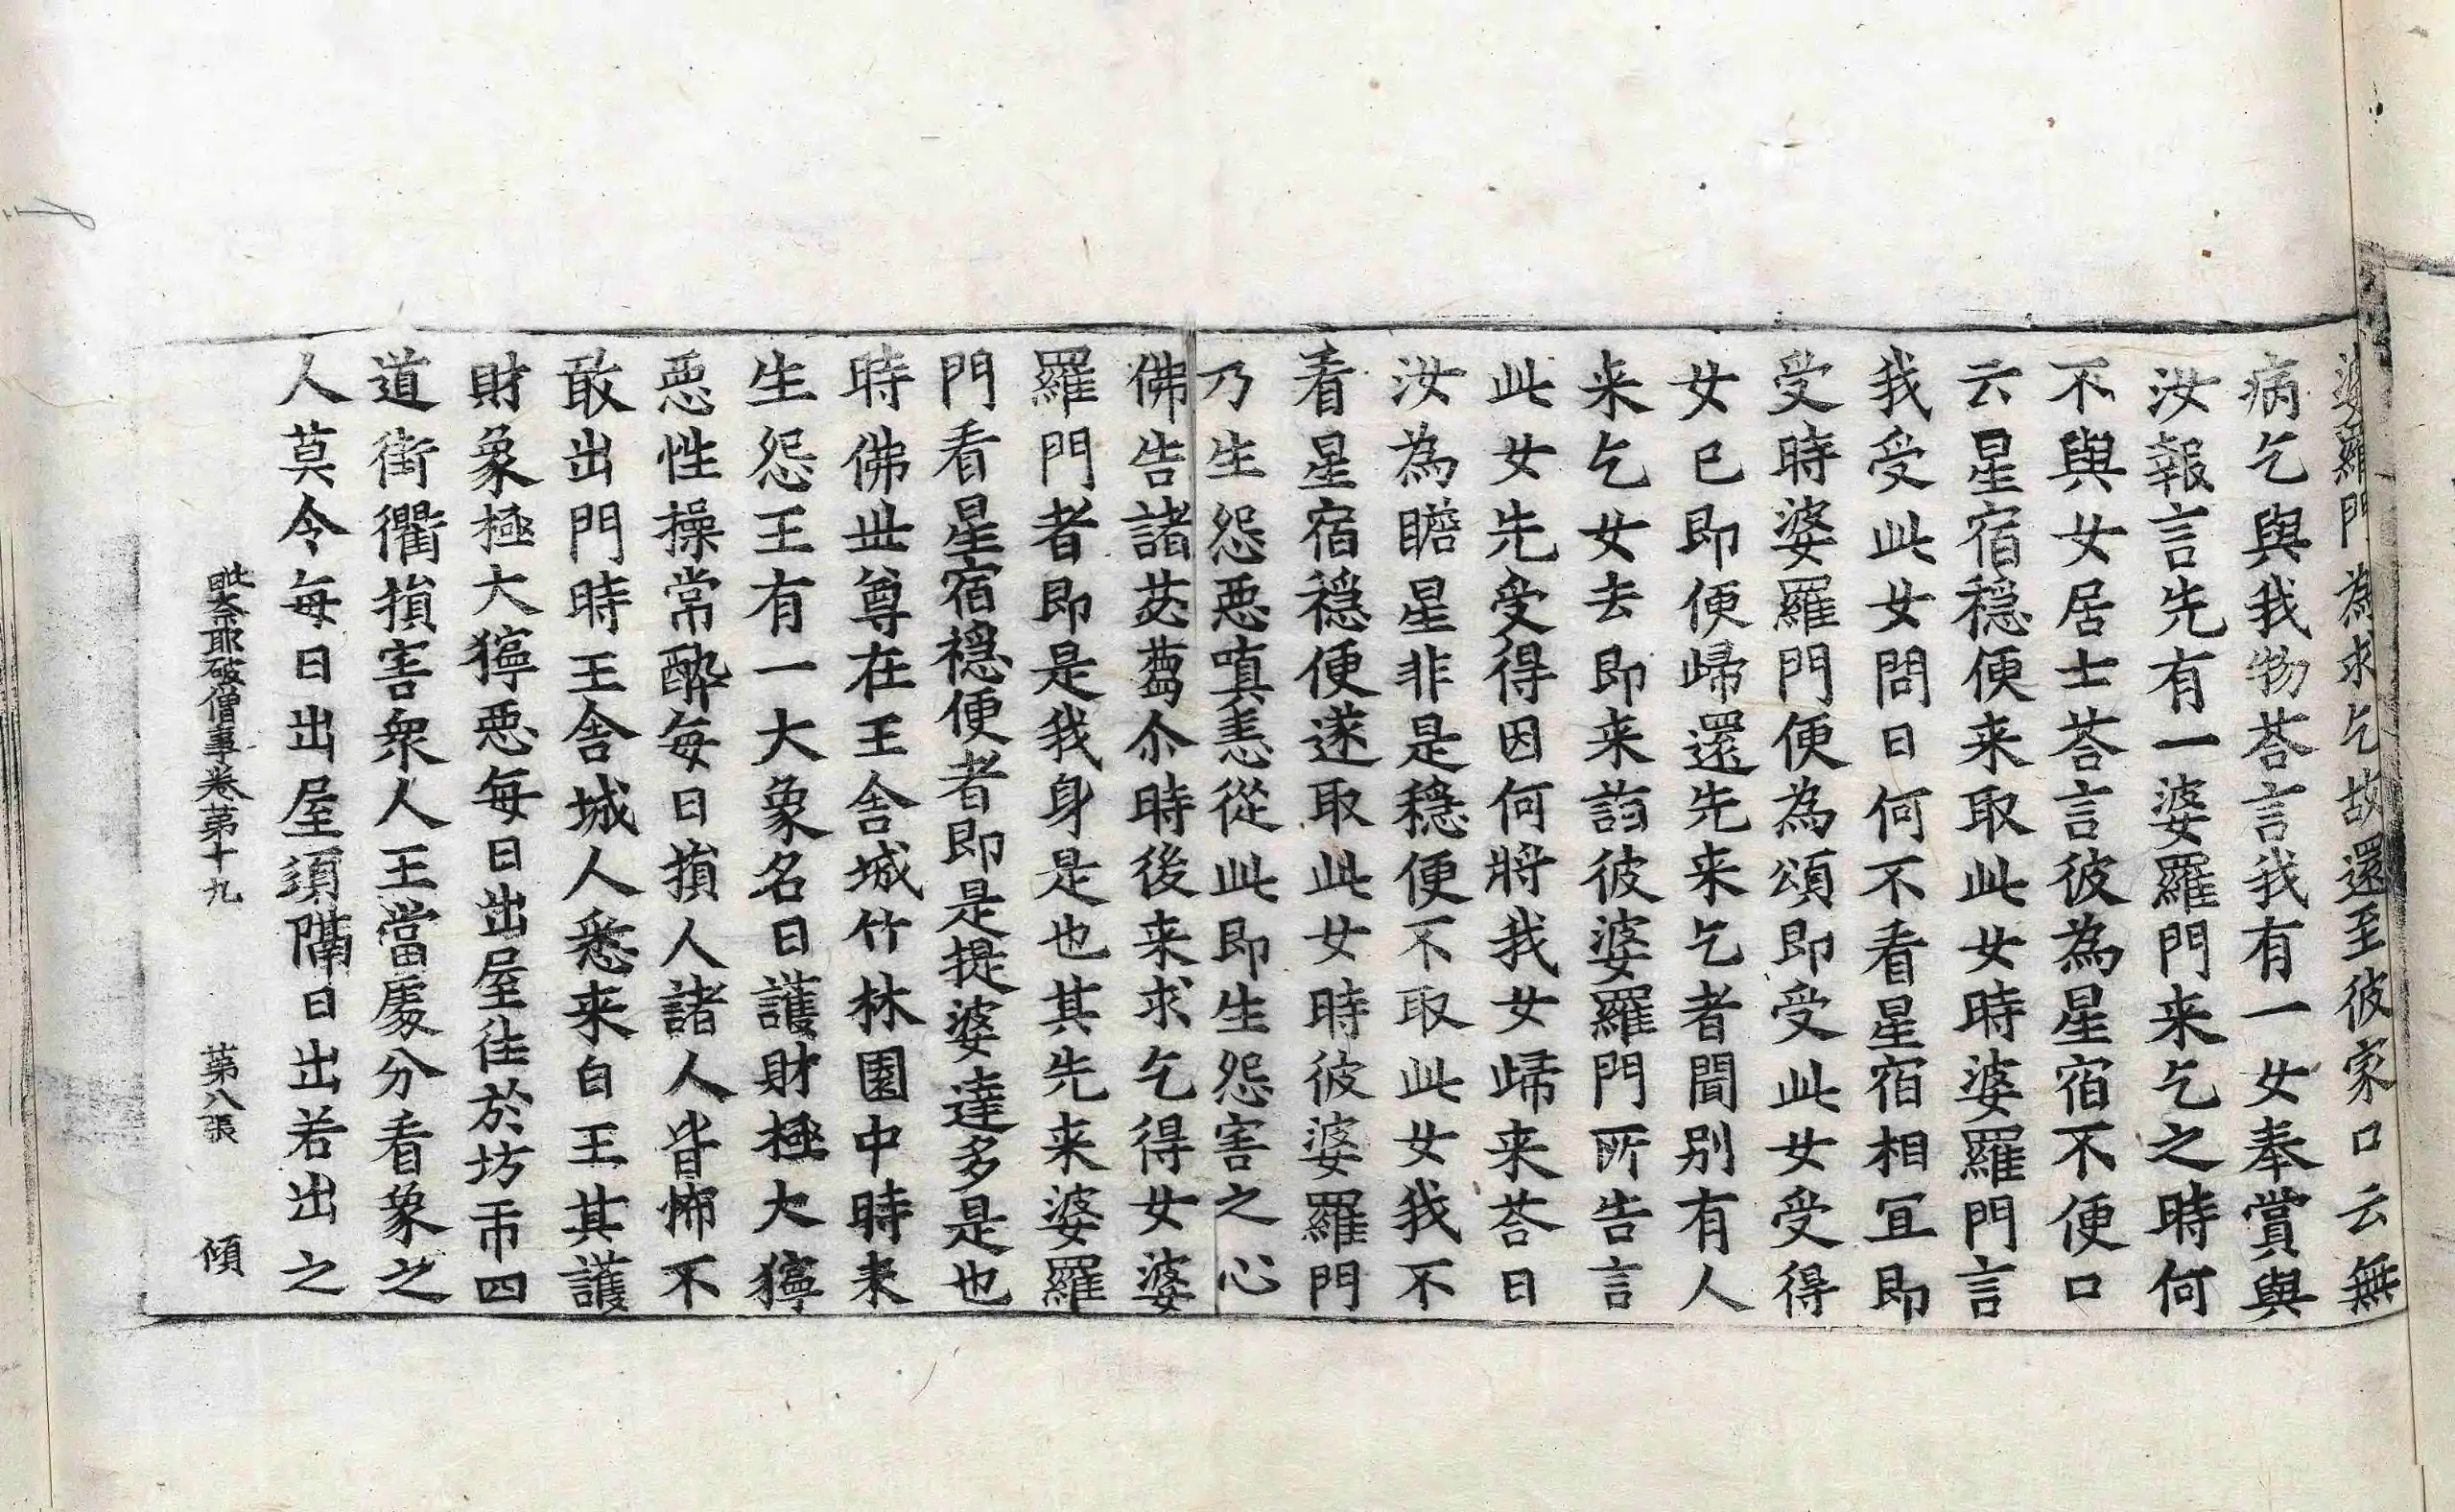 婆羅門為求乞故還至彼家口云無
病乞與我物荅言我有一女奉賞與
汝報言先有一婆羅門来乞之時何
不與女居士荅言彼為星宿不便口
云星宿穩便来取此女時婆羅門言
我受此女問日何不看星宿相冝即
受時婆羅門便為頌即受此女受得
女已即便歸還先来乞者聞別有人
来乞女去即来詣彼婆羅門所告言
此女先受得因何將我女歸来荅曰
汝為瞻星非是穩便不取此女我不
看星宿穩便遂取此女時彼婆羅門
乃生怨惡嗔恚從此即生怨害之心
佛告諸苾蒭尒時後来求乞得女婆
羅門者即是我身是也其先来婆羅
門看星宿穩便者即是提婆達多是也
時佛世尊在王舍城竹林園中時未
生怨王有一大象名曰護財極大獰
惡性操常醉每日損人諸人皆怖不
敢出門時王舍城人悉来白王其護
財象極大獰惡每日出屋往於坊市四
道街衢損害衆人王當處分看象之
人莫令每日出屋須隔日出若出之
毗奈耶破僧事卷第十九 第八張 傾